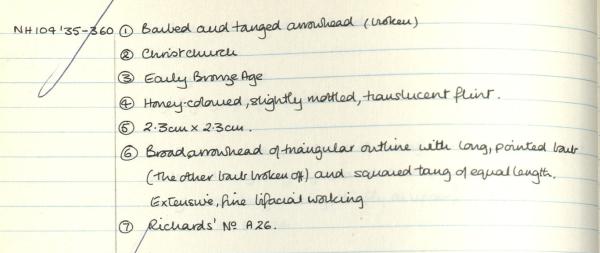 NH104'35-360 ① Barbed and tanged arrowhead (broken)
② Christchurch
③ Early Bronze Age
④ Honey-coloured, slightly mottled, translucent flint.
⑤ 2.3cm x 2.3cm.
⑥ Broad arrowhead of triangular outline with long, pointed barb
(the other barb broken off) and squared tang of equal length.
Extensive, fine bifacial working
⑦ Richards' No A26.